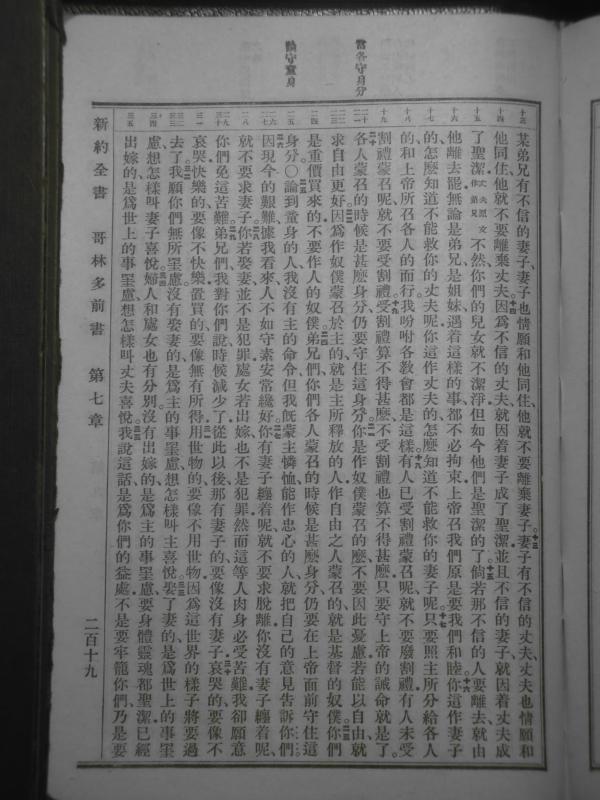 當各守身分
論守童身
某弟兄有不信的妻子、妻子也情願和他同住、他就不要離棄妻子。十三妻子有不信的丈夫、丈夫也情願和
他同住、他就不要離棄丈夫。十四因爲不信的丈夫、就因着妻子成了聖潔、並且不信的妻子、就因着丈夫成
了聖潔丈夫原文作弟兄不然、你們的兒女就不潔淨、但如今他們是聖潔的了。十五倘若那不信的人要離去、就由
他離去罷、無論是弟兄、是姐妹、遇着這樣的事、都不必拘束、上帝召我們、原是要我們和睦。十六你這作妻子
的、怎麽知道不能救你的丈夫呢、你這作丈夫的、怎麽知道不能救你的妻子呢。十七只要照主所分給各人
的、和上帝所召各人的而行、我吩咐各教會都是這樣。十八有人已受割禮蒙召呢、就不要廢割禮、有人未受
割禮蒙召呢、就不要受割禮。十九受割禮算不得甚麽、不受割禮也算不得甚麽、只要守上帝的誡命就是了。
二十各人蒙召的時候是甚麽身分、仍要守住這身分。二一你是作奴僕蒙召的麽、不要因此憂慮、若能以自由、就
求自由更好。二二因爲作奴僕蒙召於主的、就是主所釋放的人、作自由之人蒙召的、就是基督的奴僕。二三你們
是重價買來的、不要作人的奴僕。二四弟兄們、你們各人蒙召的時候是甚麽身分、仍要在上帝面前守住這
身分。○二五論到童身的人、我沒有主的命令、但我旣蒙主憐恤、能作忠心的人、就把自己的意見告訴你們。
二六因現今的艱難、據我看來、人不如守素安常纔好。二七你有妻子纏着呢、就不要求脫離、你沒有妻子纏着呢、
就不要求妻子。二八你若娶妻、並不是犯罪、處女若出嫁、也不是犯罪、然而這等人肉身必受苦難、我却願意
你們免這苦難。二九弟兄們、我對你們說、時候減少了、從此以後、那有妻子的、要像沒有妻子。三十哀哭的、要像不
哀哭、快樂的、要像不快樂、置買的、要像無有所得。三一用世物的、要像不用世物、因爲這世界的樣子將要過
去了。三二我願你們無所罣慮、沒有娶妻的、是爲主的事罣慮、想怎樣叫主喜悅。三三娶了妻的、是爲世上的事罣
慮、想怎樣叫妻子喜悅。三四婦人和處女也有分別、沒有出嫁的、是爲主的事罣慮、要身體靈魂都聖潔、已經
出嫁的、是爲世上的事罣慮、想怎樣叫丈夫喜悅。三五我說這話、是爲你們的益處、不是要牢籠你們、乃是要
新約全書 哥林多前書 第七章 二百十九